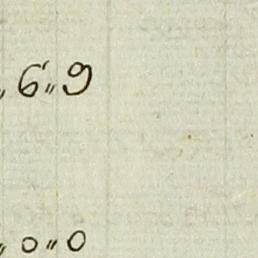 „ 6 „ 9
„ 0 „ 0